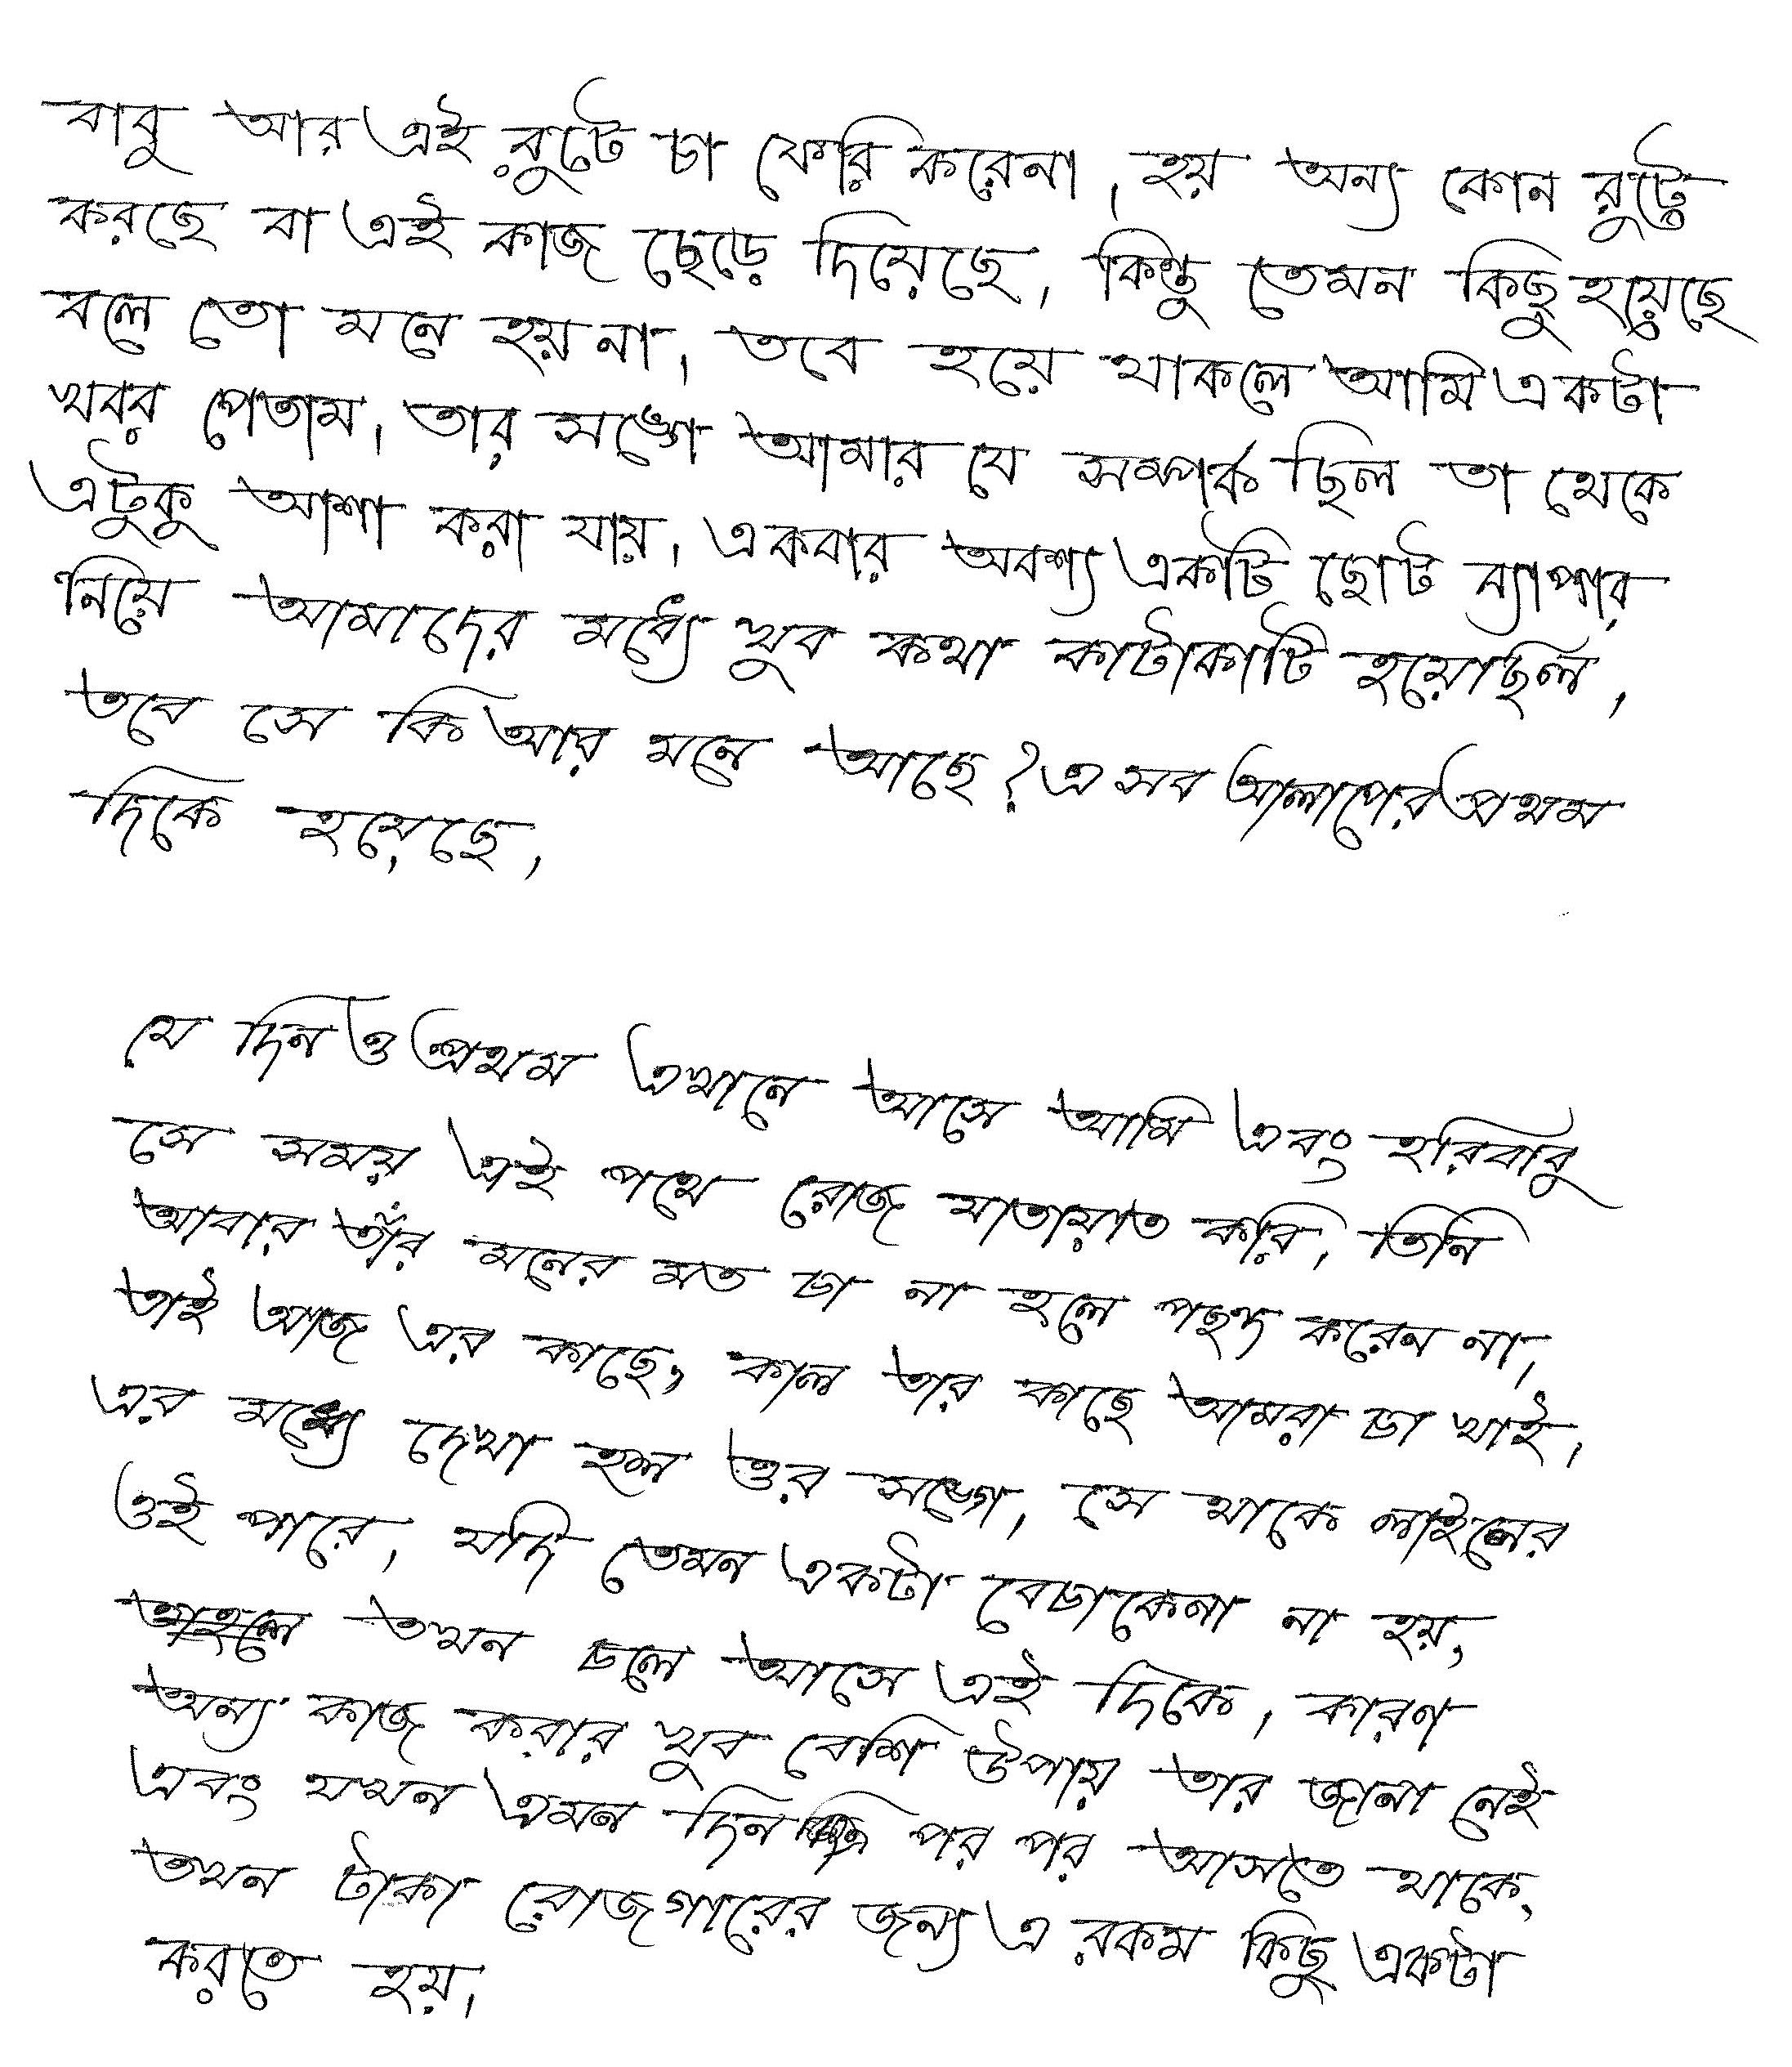 বাবু আর এই রুটে চা ফেরি করেনা। হয় অন্য কোন রুটে
করছে বা এই কাজ ছেড়ে দিয়েছে। কিন্তু তেমন কিছু হয়েছে
বলে তো মনে হয় না। তবে হয়ে থাকলে আমি একটা
খবর পেতাম। তার সঙ্গে আমার যে সম্পর্ক ছিল তা থেকে
এটুকু আশা করা যায়। একবার অবশ্য একটি ছোট ব্যাপার
নিয়ে আমাদের মধ্যে খুব কথা কাটাকাটি হয়েছিল।
তবে সে কি আর মনে আছে? এ সব আলাপের প্রথম
দিকে হয়েছে।
যে দিন ও প্রথম এখানে আসে আমি এবং হরিবাবু
সে সময় এই পথে রোজ যাতায়াত করি। তিনি
আবার তাঁর মনের মত চা না হলে পছন্দ করেন না।
তাই আজ এর কাছে, কাল তার কাছে আমরা চা খাই।
এর মধ্যে দেখা হল ওর সঙ্গে। সে থাকে লাইনের
ওই পারে। যদি তেমন একটা বেচাকেনা না হয়,
তাহলে তখন চলে আসে এই দিকে। কারণ
অন্য কাজ করার খুব বেশি উপায় তার জানা নেই
এবং যখন এমন দিন পর পর আসতে থাকে,
তখন টাকা রোজগারের জন্য এ রকম কিছু একটা
করতে হয়।